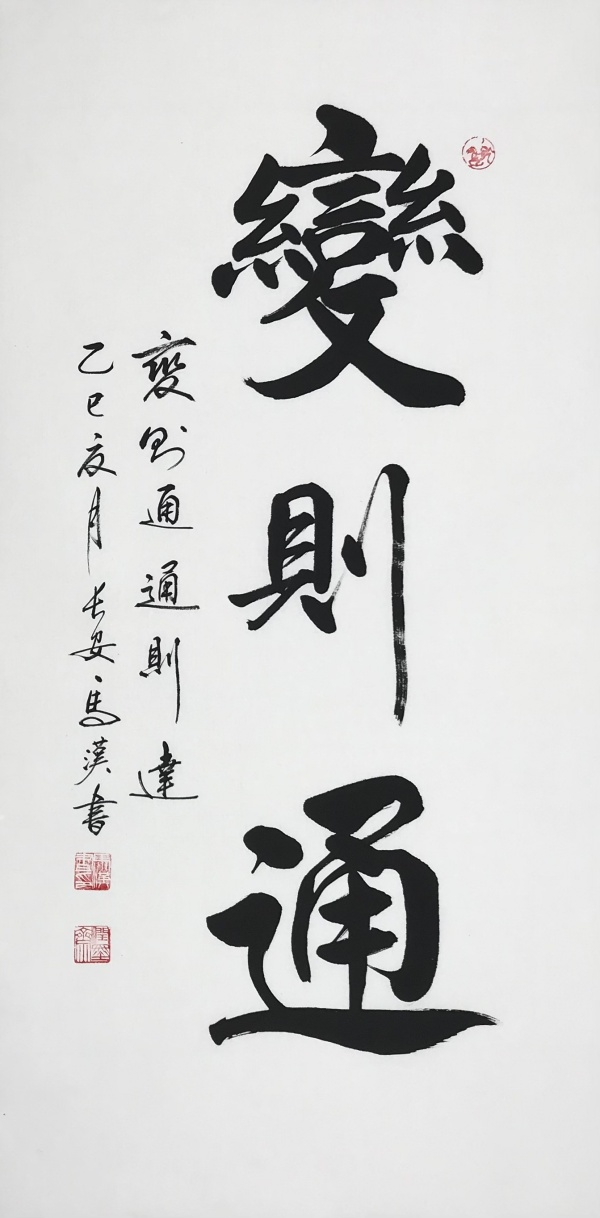 變則通
變则通通則達
乙巳亥月长安馬漢書